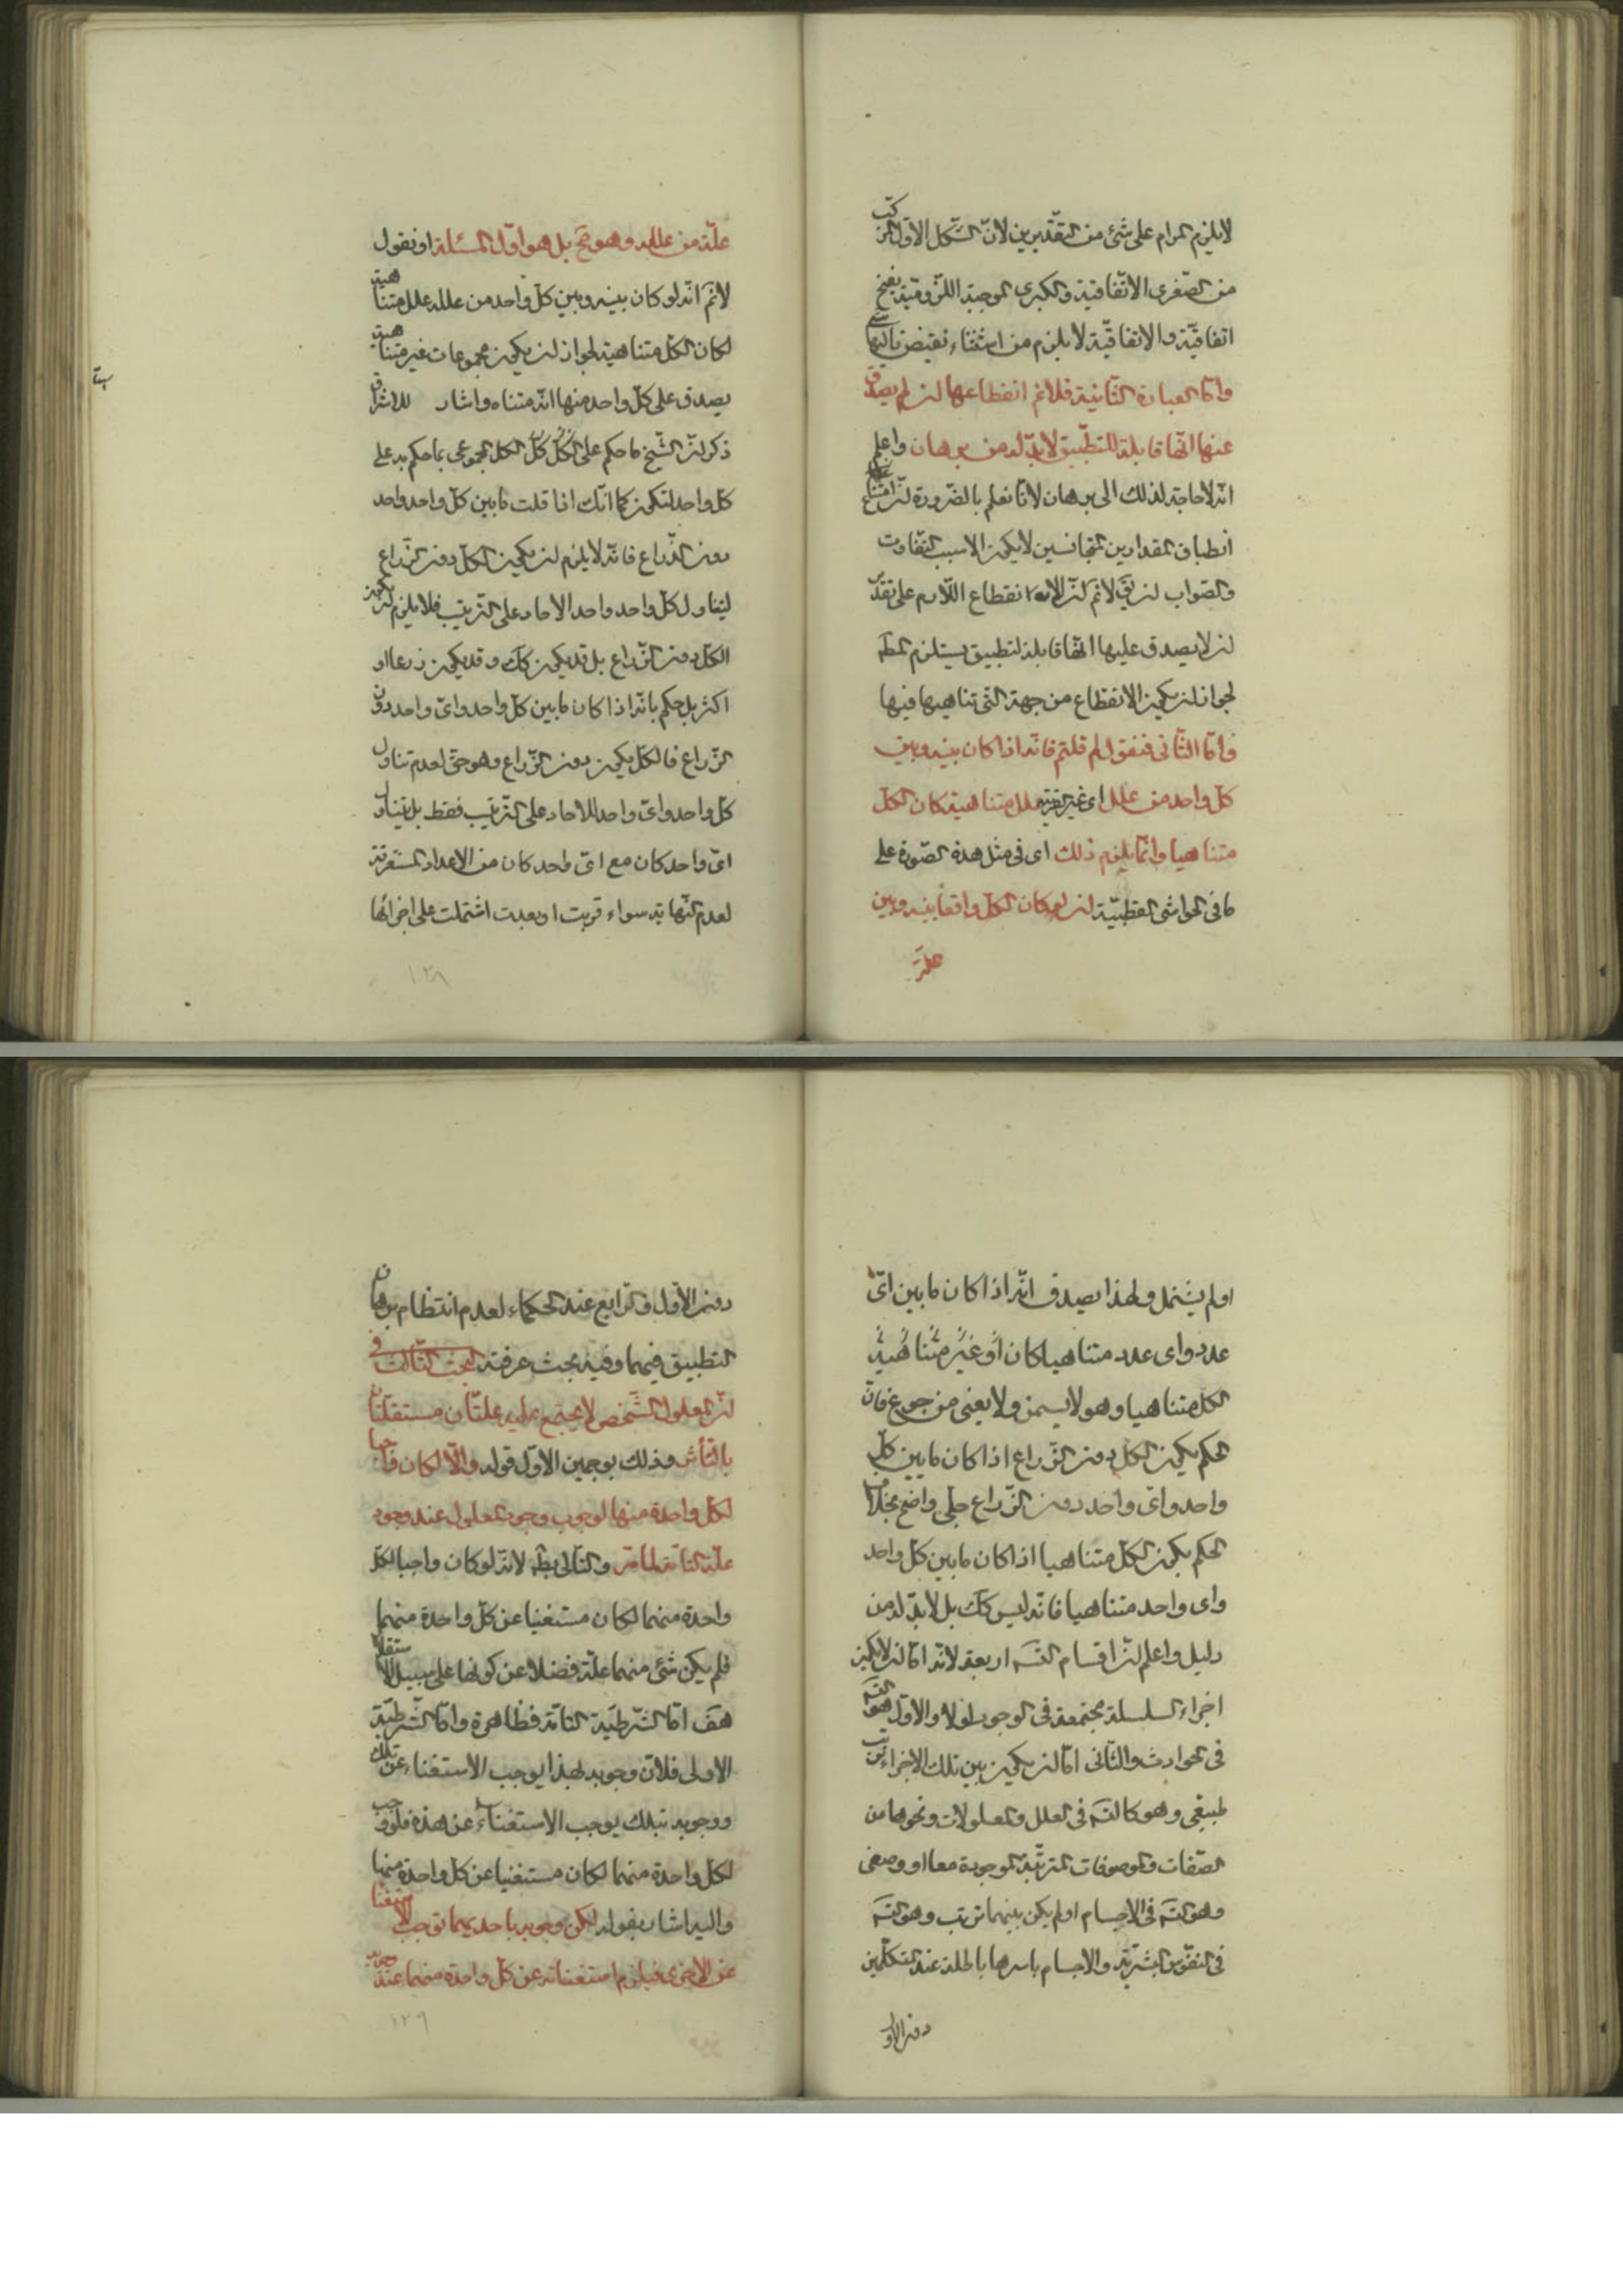 لا يلزم المرام على شئ من التقديرين لانّ الشكل الاوّل المركّب
من الصغرى الاتّفاقية والكبرى الموجبة اللزومية ينتج
اتفاقيّة والاتفاقيّة لا يلزم من استثناء نقيض تاليها شئ
وامّا العبارة الثّانية فلانم انقطاعها لن لم يصدق
عنها انّها قابلة للتطبيق لا بدّ له من برهان واعلم
انّه لا حاجة لذلك الى برهان لانّا نعلم بالضّرورة لنّ امتناع
انطباق المقدارين المتجانسين لا يكون الا بسبب التفاوت
والصواب لن يقَ لانم لنّ الانقطاع اللازم على تقدير
لن لا يصدق عليها انّها قابلة لتطبيق يستلزم المط
لجواز لن يكون الانقطاع من جهة التى تناهيها فيها
وامّا الثّانى فنقول لم قلتم فانّه اذا كان بينه وبين
كلّ واحد من علله اى غير القريبة علل متناهية كان الكل
متناهيا وانّما يلزم ذلك اى فى مثل هذه الصّورة على
ما فى الحواشى القطبيّة لن لو كان الكلّ واقعا بينه وبين
علّة
علّة من علله وهو مَح بل هو اوّل المسئلة او نقول
لانمَ انّه لو كان بينه وبين كلّ واحد من علله علل متناهية
لكان الكلّ متناهية لجواز لن يكون مجموعات غير متناهية
يصدق على كلّ واحد منها انّه متناه واشار للاشراق
ذكر لنّ الشّيخ ما حكم على الكلّ كلّ الكل المجموعى بما حكم به على
كلّ واحد لتكون كما انّك اذا قلت ما بين كلّ واحد واحد
دون الذّراع فانّه لا يلزم لن يكون الكلّ دون الذّراع
ليتناول كلّ واحد واحد الاحاد على الترتيب فلا يلزم لن يكون
الكلّ دون الذّراع بل قد يكون كك وقد يكون ذرعا او
اكثر بل حكم بانّه اذا كان ما بين كلّ واحد واىّ واحد دون
الذّراع فالكلّ يكون دون الذّراع وهو حقّ لعدم تناول
كلّ واحد واىّ واحد للاحاد على الترتيب فقط بل يتناول
اىّ واحد كان مع اىّ واحد كان من الاعداد المستغرقة
لعدم النّهاية سواء قربت او بعدت اشتملت على اجزائها
١٢٨
او لم يشتمل ولهذا يصدق انّه اذا كان ما بين اىّ
عدد واى عدد متناهيا كان او غير متناهية
الكل متناهيا وهو لا يسمن ولا يغنى من جوع فانّ
الحكم بكون الكلّ دون الذّراع اذا كان ما بين كلّ
واحد واىّ واحد دون الذّراع جلى واضح بخلاف
الحكم بكون الكلّ متناهيا اذا كان ما بين كلّ واحد
واى واحد متناهيا فانّه ليس كك بل لا بدّ له من
دليل واعلم لنّ اقسام التسَ اربعة لانّه امّا لن لا يكون
اجزاء السلسلة مجتمعة فى الوجود اولا والاوّل هو التسَ
فى الحوادث والثّانى امّا لن يكون بين تلك الاجزاء ترتيب
طبيعى وهو كالتسَ فى العلل والمعلولات ونحوها من
الصّفات والموصوفات المترتّبة الموجودة معا او وضعى
وهو التسَ فى الاجسام او لم يكن بينهما ترتب وهو التسَ
فى النفوس البشريّة والاجسام باسرها باطلة عند المتكلّمين
دون الاوّ
دون الاوّل والرّابع عند الحكماء لعدم انتظام برهان
التطبيق فيهما وفيه بحث عرفته البحث الثّالث فى
لنّ المعلول الشّخصى لا يجتمع عليه علّتان مستقلّتان
بالتّأثير وذلك بوجهين الاوّل قوله والّا لكان واجبا
لكلّ واحدة منهما لوجوب وجود المعلول عند وجود
علّته التامّة لما مر والتالى بط لانّه لو كان واجبا لكل
واحدة منهما لكان مستغنيا عن كلّ واحدة منهما
فلم يكن شئ منهما علّة فضلا عن كونها على سبيل الاستقلال
هفَ امّا الشّرطيّة الثانية فظاهرة وامّا الشّرطيّة
الاولى فلانّ وجوبه لهذا يوجب الاستغناء عن تلك
ووجوبه بتلك يوجب الاستغناء عن هذه فلو وجب
لكلّ واحدة منهما لكان مستغنيا عن كلّ واحدة منهما
واليه اشار بقوله لكن وجوبه باحديهما توجب الاستغناء
عن الاخرى فيلزم استغنائه عن كلّ واحدة منهما عند وجوبه
١٢٩